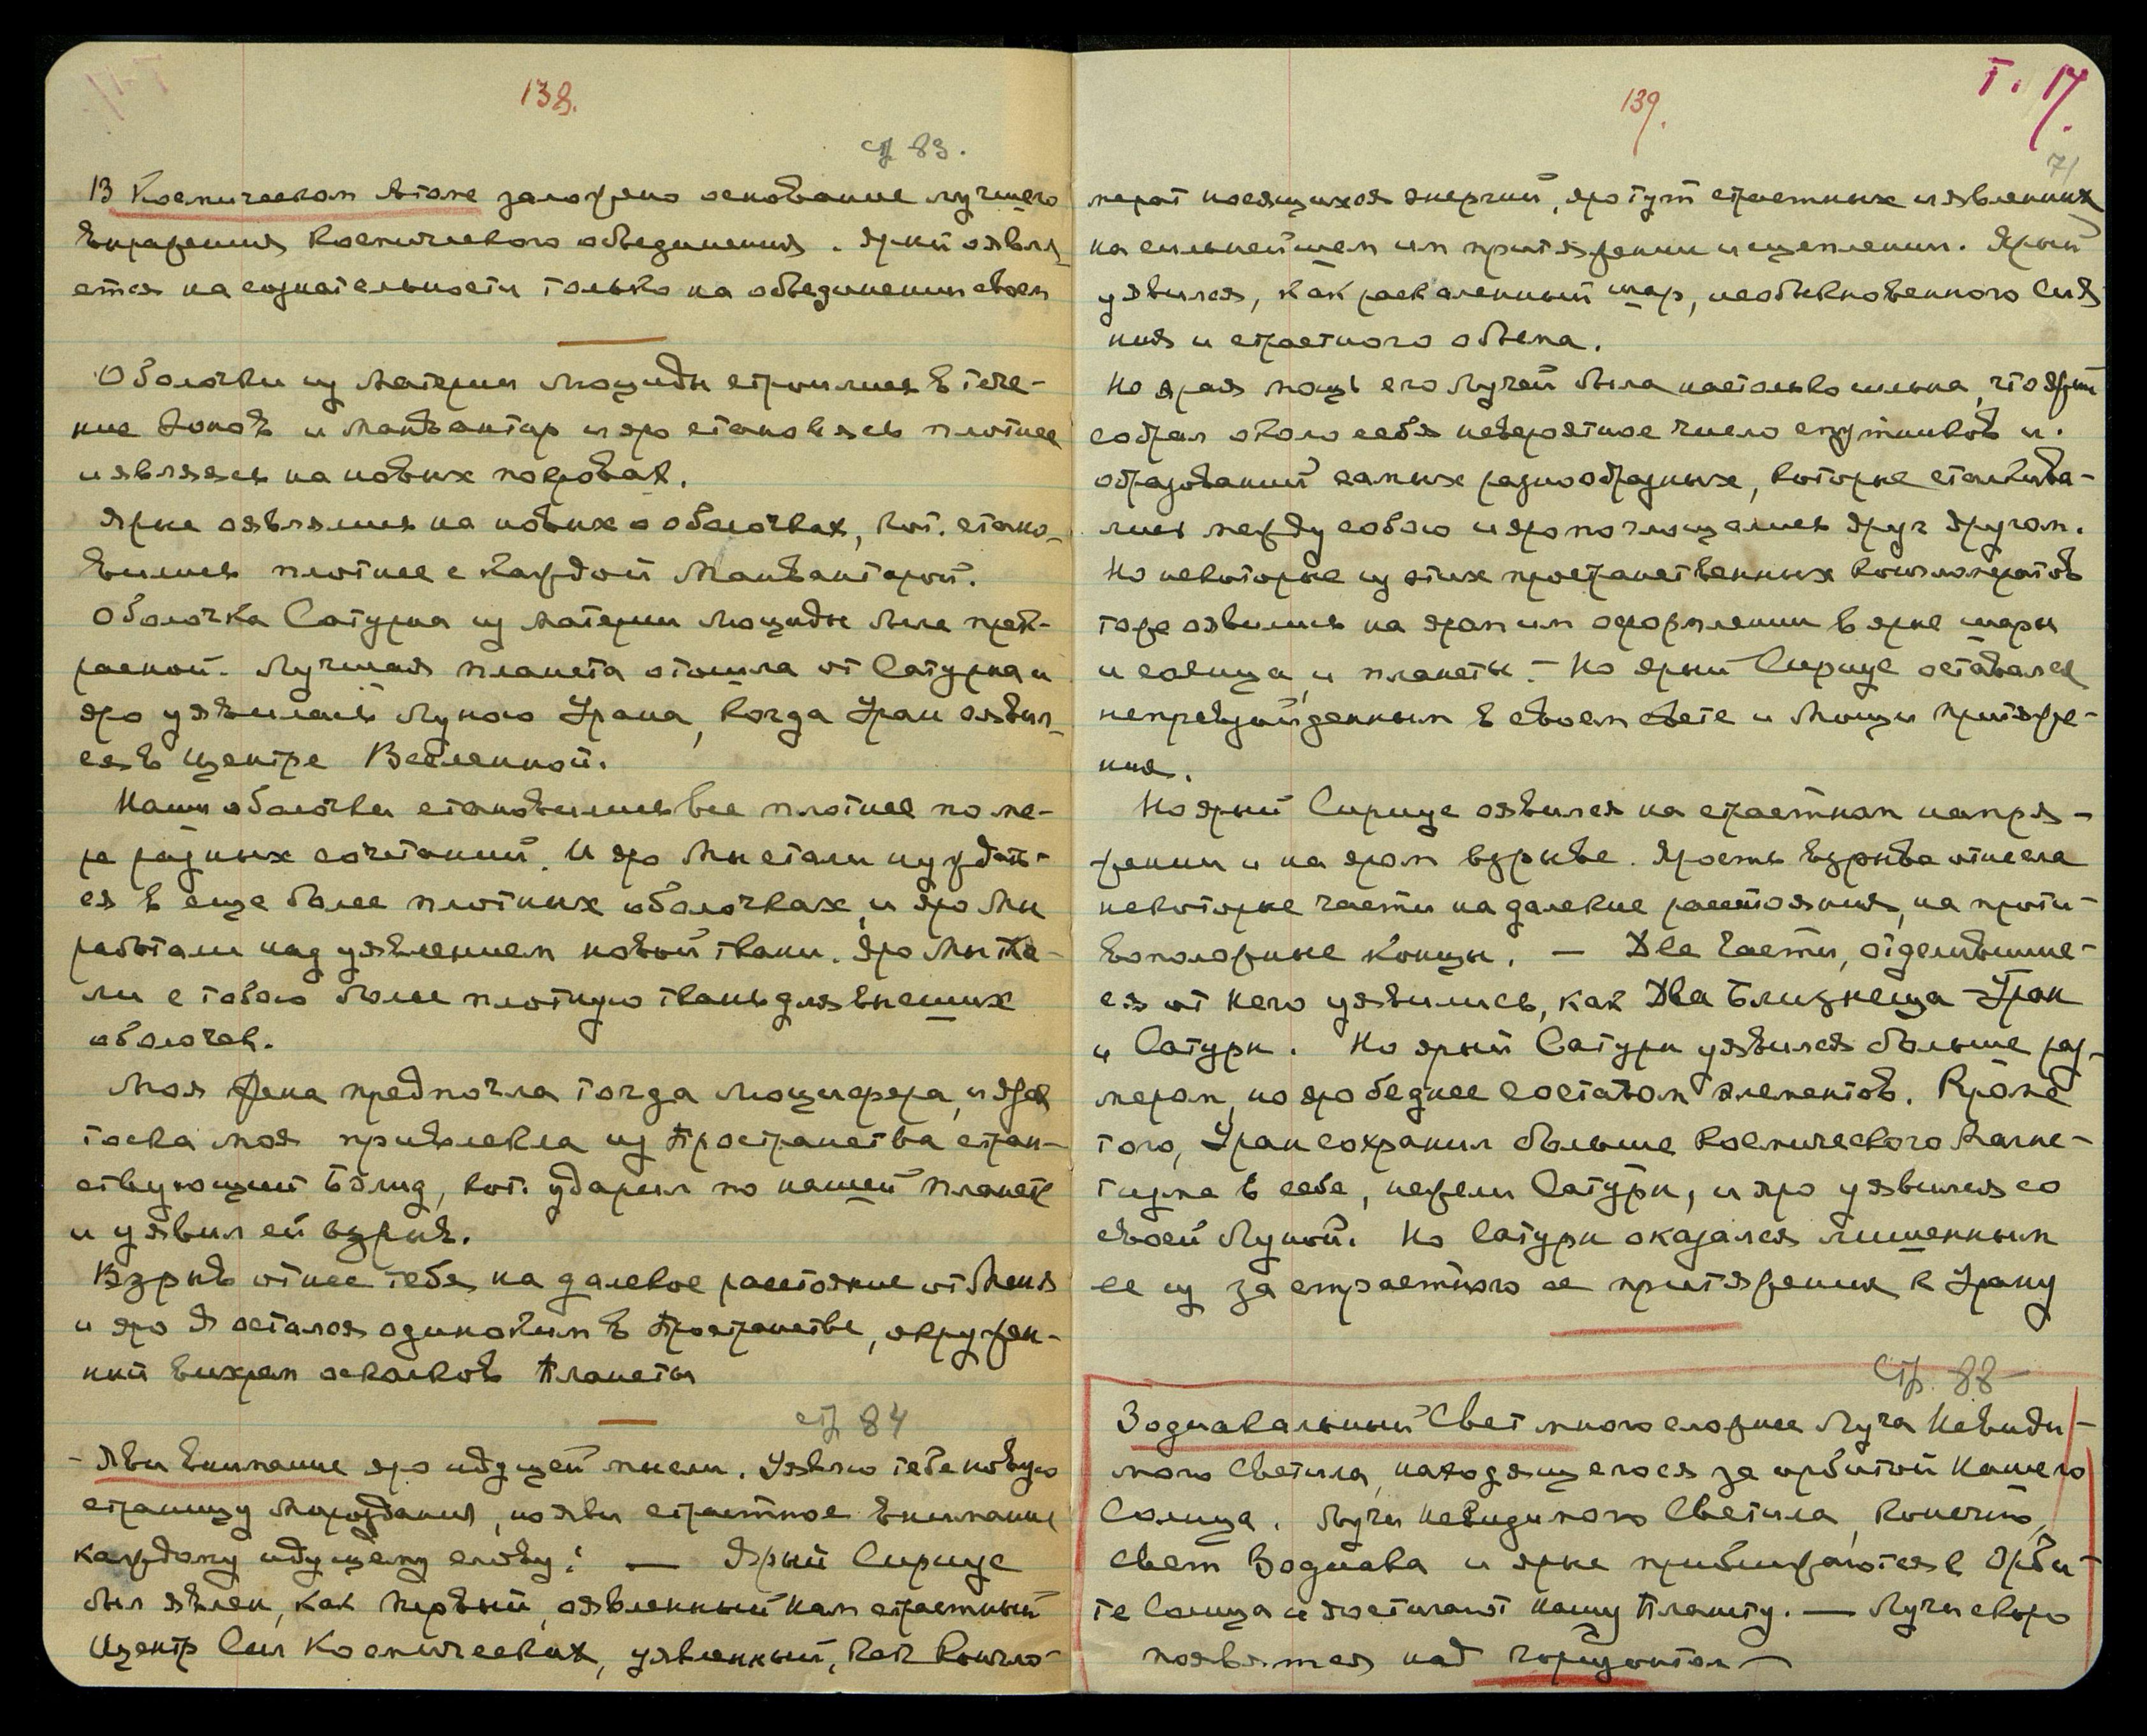 138.
стр 83.
В Космическом Атоме заложено основание лучшего
выражения космического объединения. Ярый оявля-
ется на сознательности только на объединении своем
Оболочки из Материи Люциды строились в тече-
ние Эонов и Манвантар и яро становясь плотнее
и являясь на новых покровах.
Ярые оявлялись на новых оболочках, кот. стано-
вились плотнее с каждой Манвантарой.
Оболочка Сатурна из Материи Люциды была прек-
расной. Лучшая планета отошла от Сатурна и
яро уявилась Луною Урана, когда Уран оявил-
ся в центре Вселенной.
Наши оболочки становились все плотнее по ме-
ре разных сочетаний. И яро Мы стали нуждать-
ся в еще более плотных оболочках, и яро Мы
работали над уявлением новой ткани. Яро Мы тка-
ли с тобою более плотную ткань для внешних
оболочек.
Моя жена предпочла тогда Люцифера, и ярая
тоска моя привлекла из Пространства стран-
ствующий Болид, кот. ударил по нашей планете
и уявил ей взрыв.
Взрыв отнес тебя на далекое расстояние от Меня
и яро Я остался одиноким в Пространстве, окружен-
ный вихрем осколков Планеты
стр 84
- Яви внимание яро идущей мысли. Уявлю тебе новую
страницу Мироздания, но яви страстное внимание
каждому идущему слову: — Ярый Сириус
был явлен, как первый, оявленный нам страстный
Центр Сил Космических, уявленный, как конгло-
139.
Т. 17.
71
мерат носящихся энергий, яро тут страстных и явленных
на сильнейшем им притяжении и сцеплении. Ярый
уявился, как раскаленный шар, необыкновенного сия-
ния и страстного объема.
Но ярая мощь его Лучей была настолько сильна, что ярый
собрал около себя невероятное число спутников и
образований самых разнообразных, которые сталкива-
лись между собою и яро поглощались друг другом.
Но некоторые из этих пространственных конгломератов
тоже оявились на яром им оформлении в ярые шары
и солнца, и планеты. - Но ярый Сириус оставался
непревзойденным в своем свете и Мощи притяже-
ния.
Но ярый Сириус оявился на страстном напря-
жении и на яром взрыве. Ярость взрыва отнесла
некоторые части на далекие расстояния, на проти-
воположные концы. — Две Части, отделившие-
ся от него уявились, как Два Близнеца - Уран
и Сатурн. Но ярый Сатурн уявился больше раз-
мером, но яро беднее составом элементов. Кроме
того, Уран сохранил больше космического Магне-
тизма в себе, нежели Сатурн, и яро уявился со
своей Луной. Но Сатурн оказался лишенным
ее из за страстного ее притяжения к Урану
стр. 88
Зодиакальный Свет много сложнее Луча Невиди-
мого Светила, находящегося за орбитой нашего
Солнца. Лучи невидимого Светила, конечно,
свет Зодиака и ярые приближаются к Орби-
те Солнца и достигают нашу Планету. — Лучи скоро
появятся над горизонтом —